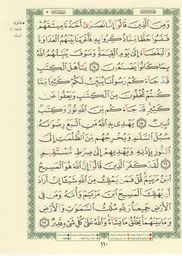 وَمِنَ ٱلَّذِينَ قَالُوٓا۟ إِنَّا نَصَـٰرَىٰٓ أَخَذْنَا مِيثَـٰقَهُمْ
فَنَسُوا۟ حَظًّا مِّمَّا ذُكِّرُوا۟ بِهِۦ فَأَغْرَيْنَا بَيْنَهُمُ ٱلْعَدَاوَةَ
وَٱلْبَغْضَآءَ إِلَىٰ يَوْمِ ٱلْقِيَـٰمَةِ وَسَوْفَ يُنَبِّئُهُمُ ٱللَّهُ
بِمَا كَانُوا۟ يَصْنَعُونَ ١٤ يَـٰٓأَهْلَ ٱلْكِتَـٰبِ
قَدْ جَآءَكُمْ رَسُولُنَا يُبَيِّنُ لَكُمْ كَثِيرًا مِّمَّا
كُنتُمْ تُخْفُونَ مِنَ ٱلْكِتَـٰبِ وَيَعْفُوا۟ عَن
كَثِيرٍ قَدْ جَآءَكُم مِّنَ ٱللَّهِ نُورٌ وَكِتَـٰبٌ
مُّبِينٌ ١٥ يَهْدِى بِهِ ٱللَّهُ مَنِ ٱتَّبَعَ رِضْوَٰنَهُۥ
سُبُلَ ٱلسَّلَـٰمِ وَيُخْرِجُهُم مِّنَ ٱلظُّلُمَـٰتِ إِلَى
ٱلنُّورِ بِإِذْنِهِۦ وَيَهْدِيهِمْ إِلَىٰ صِرَٰطٍ مُّسْتَقِيمٍ ١٦
لَّقَدْ كَفَرَ ٱلَّذِينَ قَالُوٓا۟ إِنَّ ٱللَّهَ هُوَ ٱلْمَسِيحُ
ٱبْنُ مَرْيَمَ قُلْ فَمَن يَمْلِكُ مِنَ ٱللَّهِ شَيْـًٔا إِنْ أَرَادَ
أَن يُهْلِكَ ٱلْمَسِيحَ ٱبْنَ مَرْيَمَ وَأُمَّهُۥ وَمَن فِى
ٱلْأَرْضِ جَمِيعًا وَلِلَّهِ مُلْكُ ٱلسَّمَـٰوَٰتِ وَٱلْأَرْضِ
وَمَا بَيْنَهُمَا يَخْلُقُ مَا يَشَآءُ وَٱللَّهُ عَلَىٰ كُلِّ شَىْءٍ قَدِيرٌ ١٧
١١٠